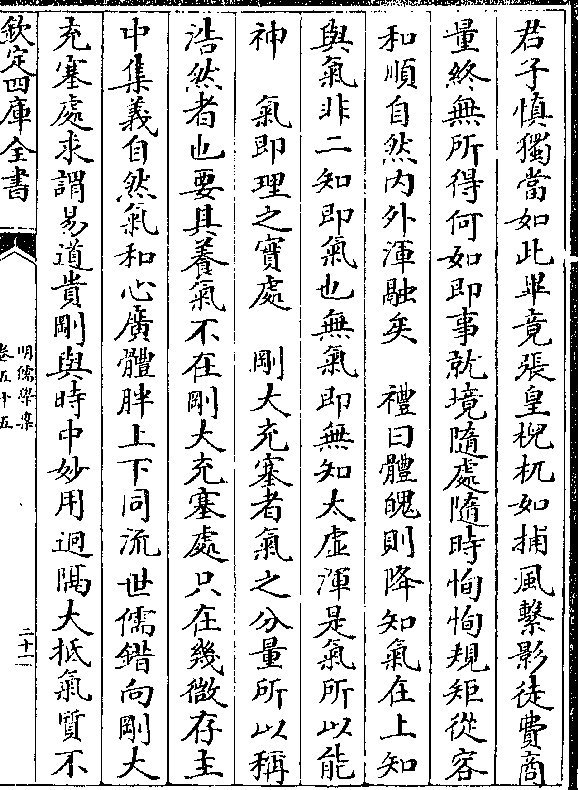 君子慎獨當如此畢竟張皇棿杌如捕風繫影徒費商
量終無所得何如即事就境隨處隨時恂恂規矩從容
和順自然内外渾融矣　禮曰體魄則降知氣在上知
與氣非二知即氣也無氣即無知太虛渾是氣所以能
神　氣即理之實處　剛大充塞者氣之分量所以稱
浩然者也要其養氣不在剛大充塞處只在幾微存主
中集義自然氣和心廣體胖上下同流世儒錯向剛大
充塞處求謂易道貴剛與時中妙用迥隔大抵氣質不
欽定四庫全書
明儒學案
卷五十五
二十二